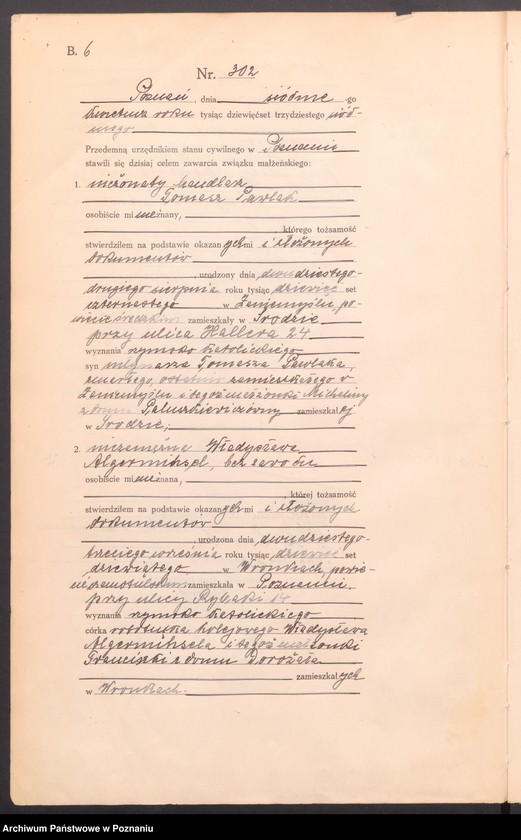 B. 6
Nr. 302
Poznań, dnia siódme -go
kwietnia roku tysiąc dziewięćset trzydziestego siód-
mego
Przedemną urzędnikiem stanu cywilnego w Poznaniu
stawili się dzisiaj celem zawarcia związku małżeńskiego:
1. nieżonaty handlarz
Tomasz Pawlak
osobiście mi nieznany,
, którego tożsamość
stwierdziłem na podstawie okazanych mi i złożonych
dokumentów
, urodzony dnia dwudziestego-
drugiego sierpnia roku tysiąc dziewięć set
czternastego w Zaniemyślu, po-
wiecie średzkim zamieszkały w Środzie
przy ulica Hallera 24
wyznania rzymsko katolickiego
syn młynarza Tomasza Pawlaka,
zmarłego, ostatnio zamieszkałego w
Zaniemyślu i tegoż małżonki Michaliny
z domu Paluszkiewiczówny zamieszkałej
w Środzie,
2. niezamężna Władysława
bez zawodu
osobiście mi nieznana,
, której tożsamość
stwierdziłem na podstawie okazanych mi i złożonych
dokumentów
, urodzona dnia dwudziestego-
trzeciego września roku tysiąc dziewięć set
dziewiątego w Wronkach, powie-
cie szamotulskim zamieszkała w Poznaniu.
przy ulicy Rybaki 14
wyznania rzymsko katolickiego
córka robotnika kolejowego Władysława
i tegoż małżonki
Franciszki z domu Dorożała
zamieszkałych
w Wronkach.
Archiwum Państwowe w Poznaniu